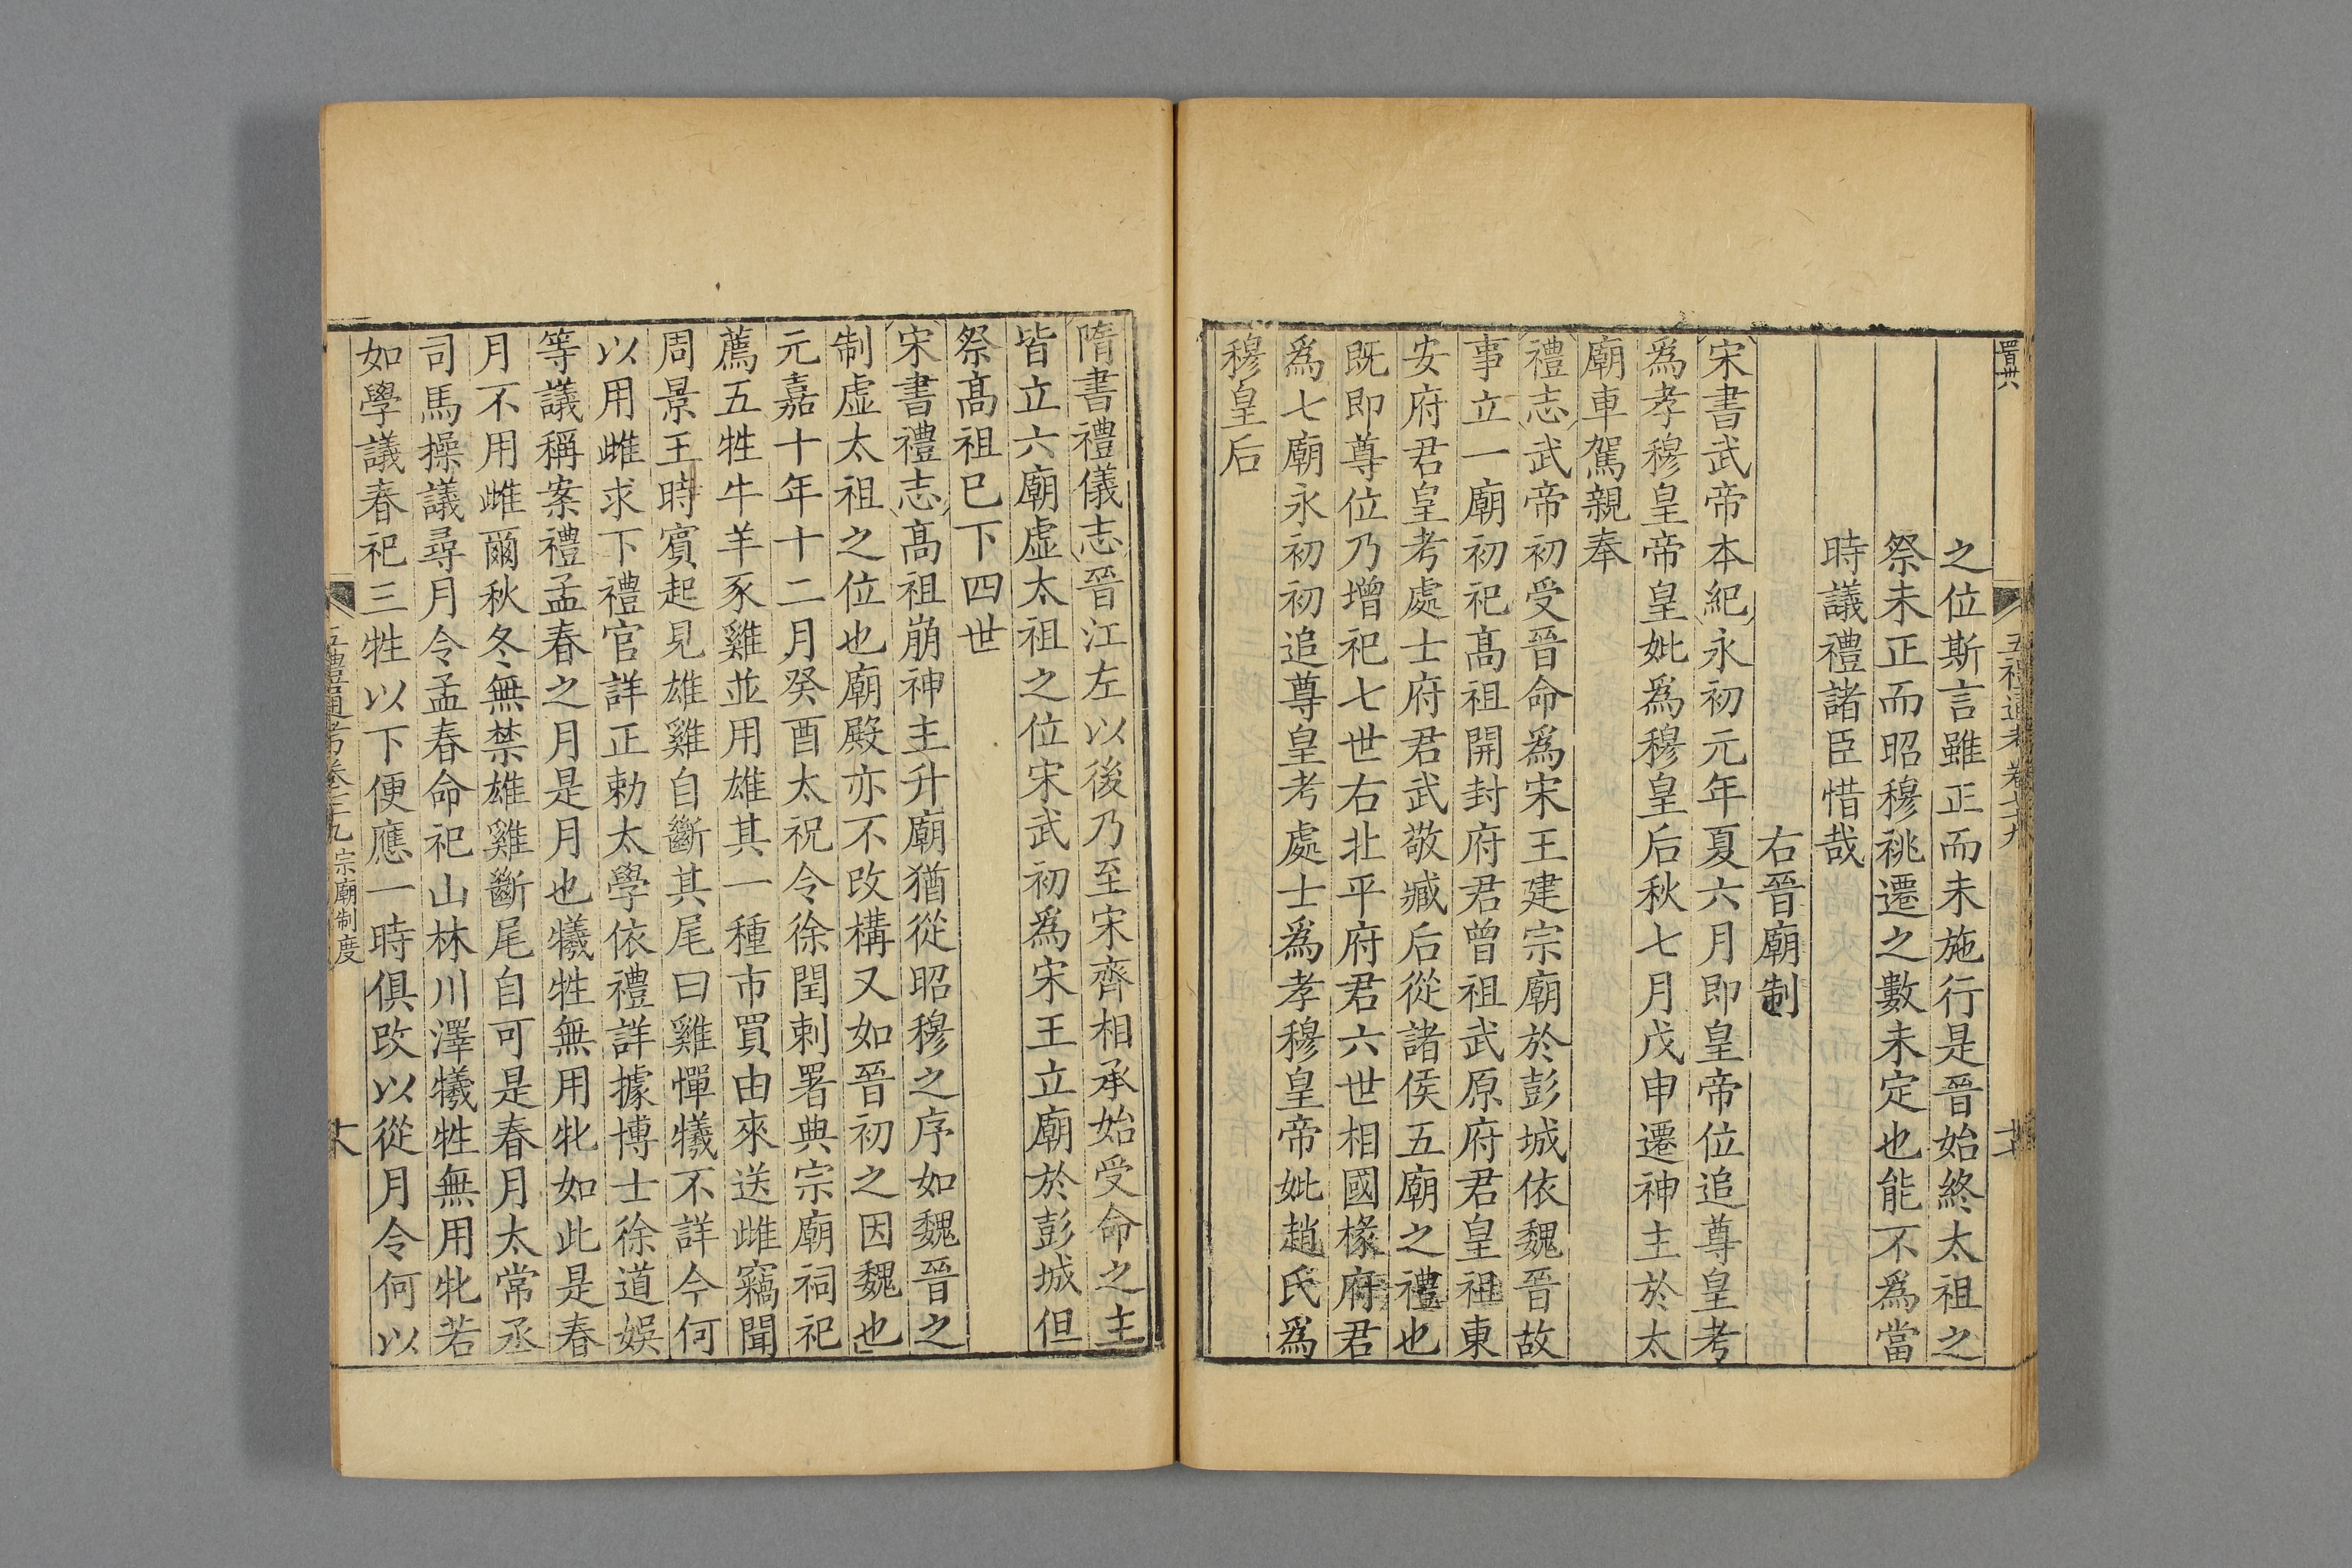 五禮通考卷七十九
之位斯言雖正而未施行是晉始終太祖之
祭未正而昭穆祧遷之數未定也能不爲當
時議禮諸臣惜哉
右晉廟制
宋書武帝本紀永初元年夏六月即皇帝位追尊皇考
爲孝穆皇帝皇妣爲穆皇后秋七月戊申遷神主於太
廟車駕親奉
禮志武帝初受晉命爲宋王建宗廟於彭城依魏晉故
事立一廟初祀髙祖開封府君曾祖武原府君皇祖東
安府君皇考處士府君武敬臧后從諸侯五廟之禮也
既即尊位乃增祀七世右北平府君六世相國掾府君
爲七廟永初初追尊皇考處士爲孝穆皇帝妣趙氏爲
穆皇后
隋書禮儀志晉江左以後乃至宋齊相承始受命之主
皆立六廟虛太祖之位宋武初爲宋王立廟於彭城但
祭髙祖已下四世
宋書禮志髙祖崩神主升廟猶從昭穆之序如魏晉之
制虛太祖之位也廟殿亦不改構又如晉初之因魏也
元嘉十年十二月癸酉太祝令徐閏刺署典宗廟祠祀
薦五牲牛羊豕雞並用雄其一種市買由來送雌竊聞
周景王時賔起見雄雞自斷其尾曰雞憚犧不詳今何
以用雌求下禮官詳正勅太學依禮詳據博士徐道娛
等議稱案禮孟春之月是月也犧牲無用牝如此是春
月不用雌爾秋冬無禁雄雞斷尾自可是春月太常丞
司馬操議尋月令孟春命祀山林川澤犧牲無用牝若
如學議春祀三牲以下便應一時俱改以從月令何以
五禮通考卷七十九 宗廟制度